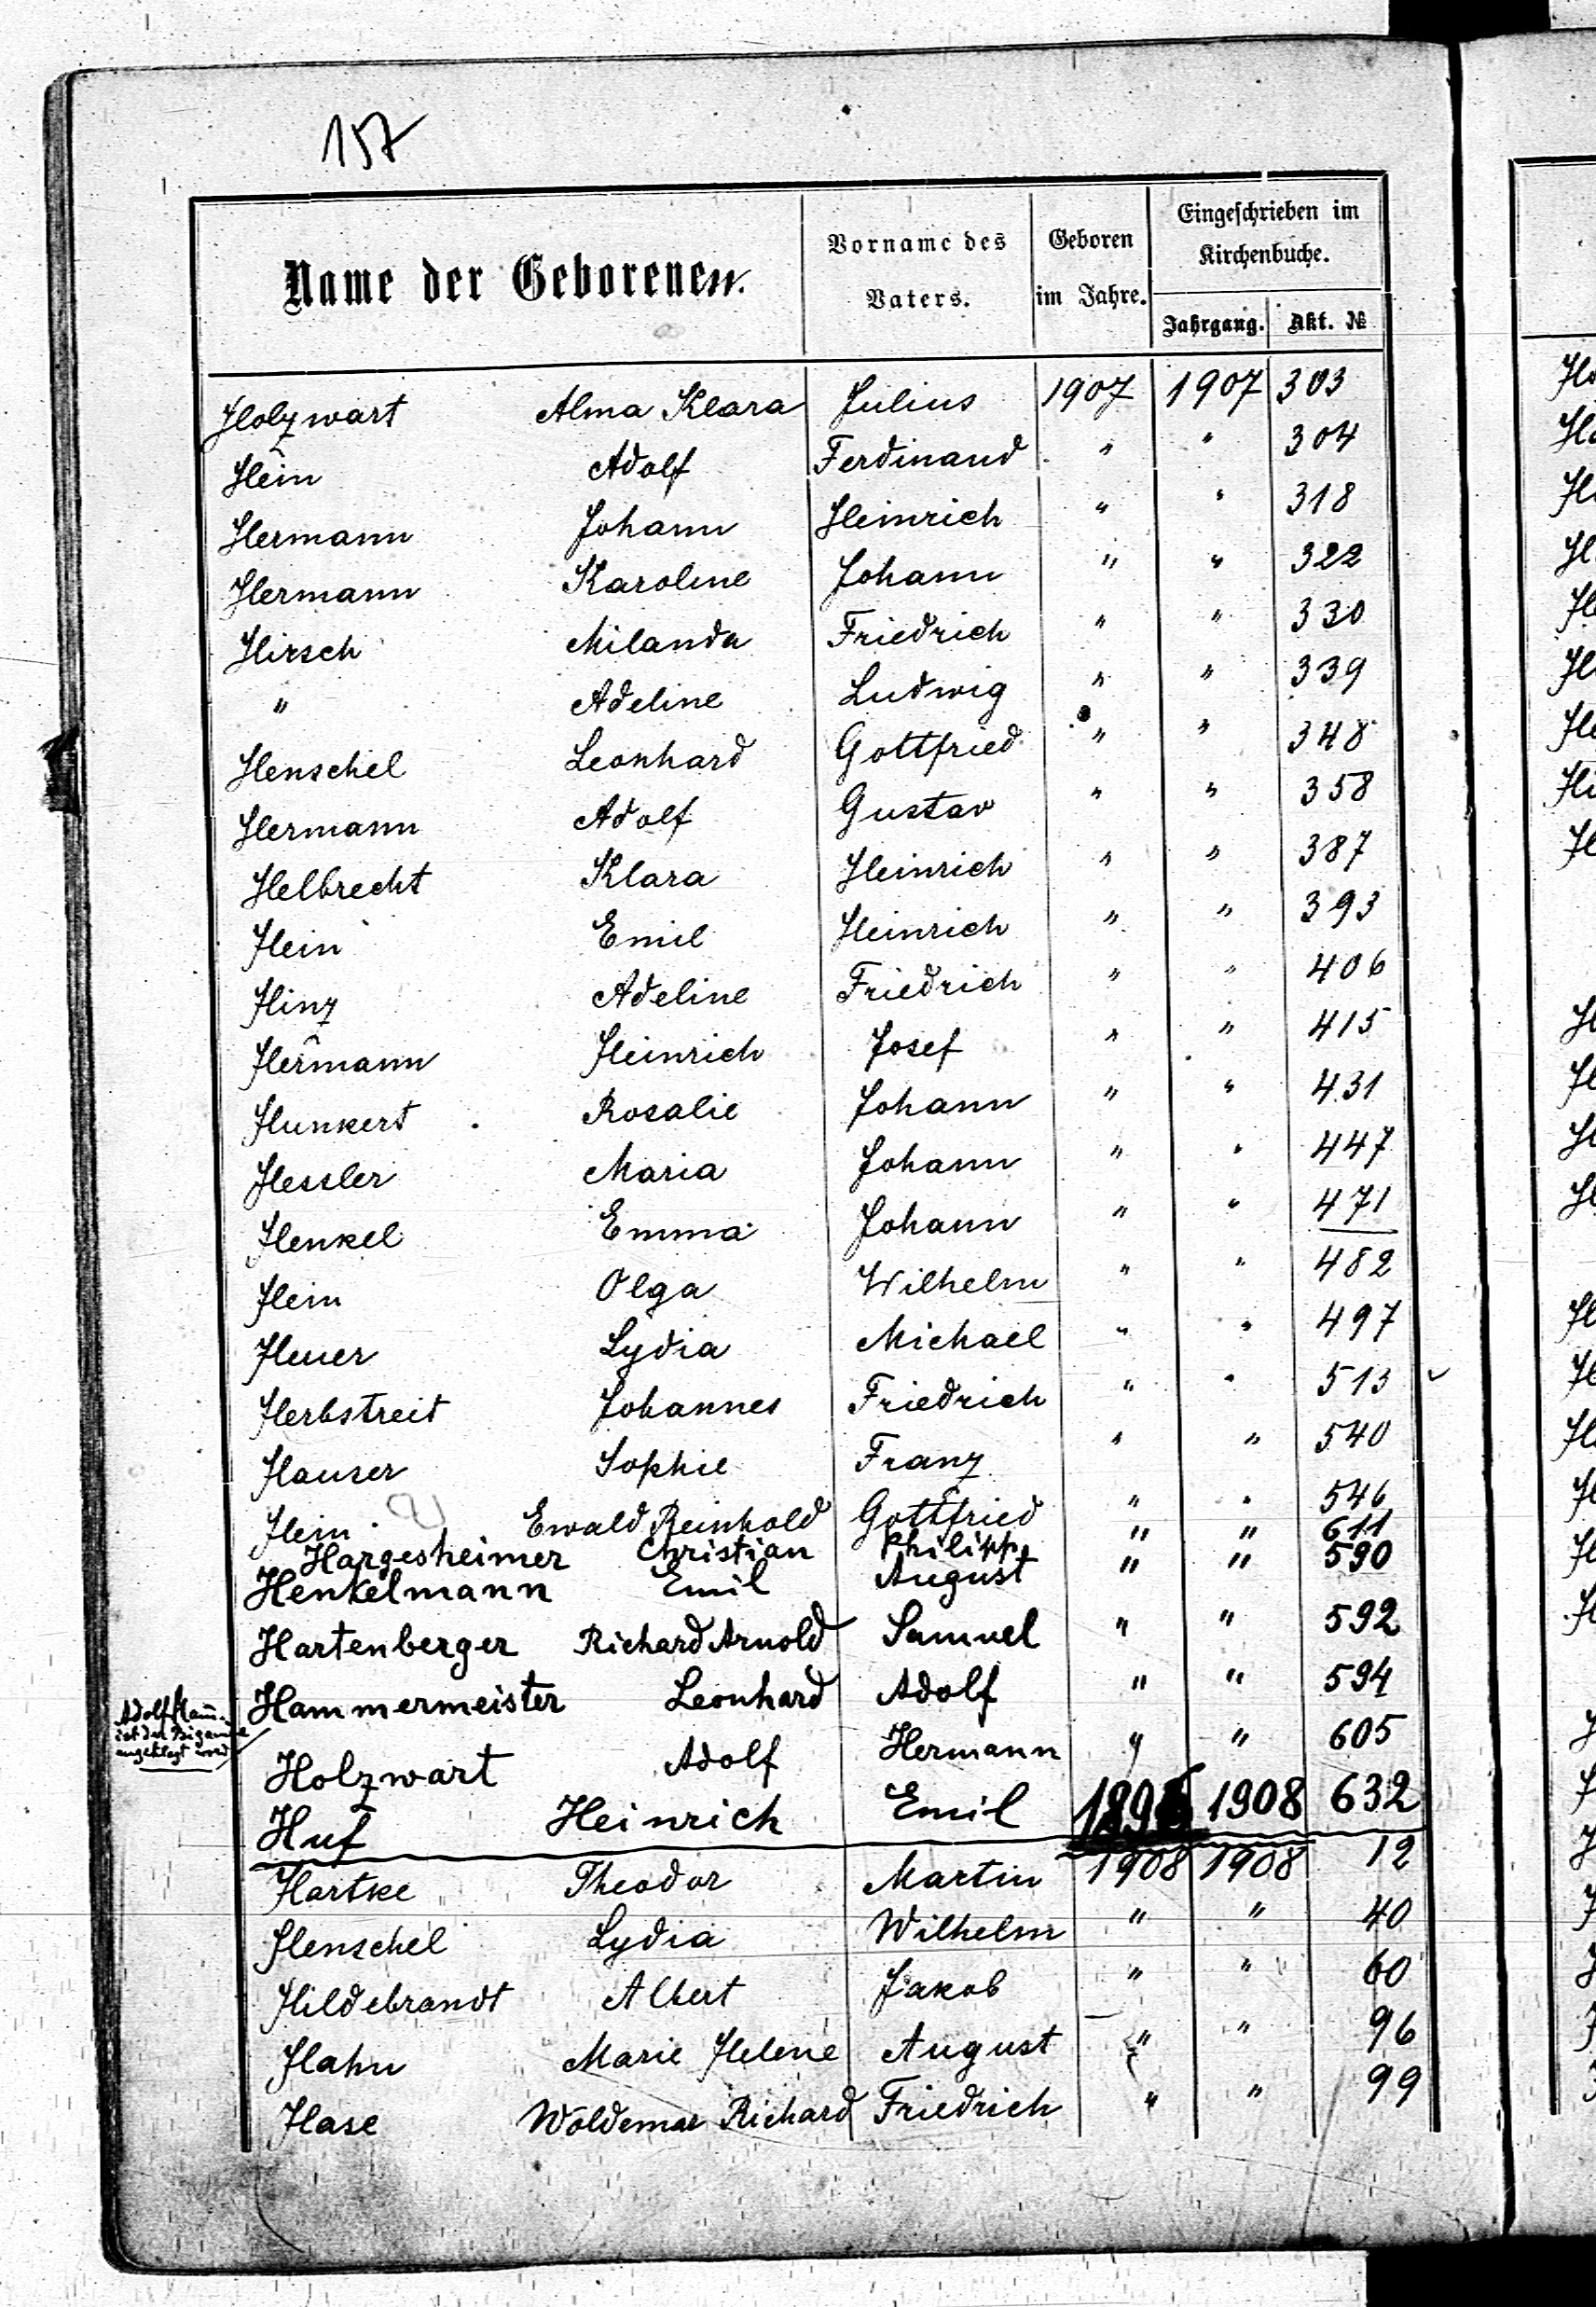 157
Name der Geborenen. Vorname des Vaters. Geboren im Jahre. Eingeschrieben im Kirchenbuche.
Jahrgang. Akt. №
Holzwart Alma Klara Julius 1907 1907 303
Hein Adolf Ferdinand " " 304
Hermann Johann Heinrich " " 318
Hermann Karoline Johann " " 322
Hirsch Milanda Friedrich " " 330
" Adeline Ludwig " " 339
Henschel Leonhard Gottfried " " 348
Hermann Adolf Gustav " " 358
Helbrecht Klara Heinrich " " 387
Hein Emil Heinrich " " 393
Hinz Adeline Friedrich " " 406
Hermann Heinrich Josef " " 415
Hunkert Rosalie Johann " " 431
Hessler Maria Johann " " 447
Henkel Emma Johann " " 471
Hein Olga Wilhelm " " 482
Heuer Lydia Michael " " 497
Herbstreit Johannes Friedrich " " 513
Hauser Sophie Franz " " 540
Hein Ewald Reinhold Gottfried " " 546
Hargesheimer Christian Philipp " " 611
Henkelmann Emil August " " 590
Hartenberger Richard Arnold Samuel " " 592
Hammermeister Leonhard Adolf " " 594
Adolf Ham.
ist der Bigamie
angeklagt
Holzwart Adolf Hermann " " 605
Huf Heinrich Emil 1908 632
Hartke Theodor Martin 1908 1908 12
Henschel Lydia Wilhelm " " 40
Hildebrandt Albert Jakob " " 60
Hahn Marie Helene August " " 96
Hase Woldemar Richard Friedrich " " 99